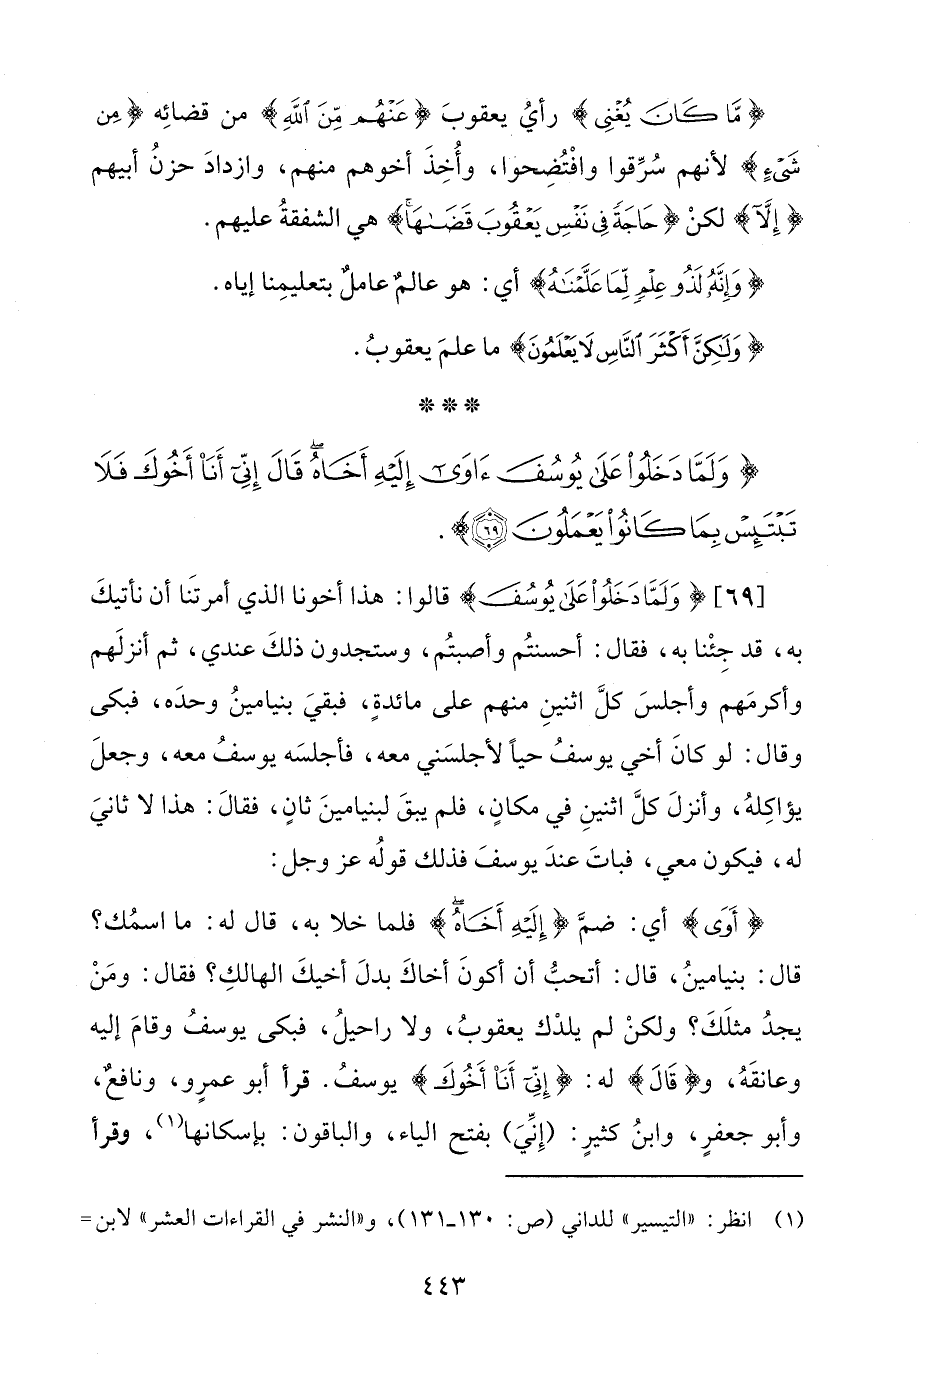 ﴿ مَّا كَانَ يُغْنِى ﴾ رأيُ يعقوبَ ﴿ عَنْهُم مِّنَ ٱللَّهِ ﴾ من قضائِه ﴿ مِن
شَىْءٍ ﴾ لأنهم سُرِّقوا وافْتُضِحوا، وأُخِذَ أخوهم منهم، وازدادَ حزنُ أبيهم
﴿ إِلَّآ ﴾ لكنْ ﴿ حَاجَةً فِى نَفْسِ يَعْقُوبَ قَضَىٰهَاۚ ﴾ هي الشفقةُ عليهم.
﴿ وَإِنَّهُۥ لَذُو عِلْمٍ لِّمَا عَلَّمْنَٰهُ ﴾ أي: هو عالمٌ عاملٌ بتعليمِنا إياه.
﴿ وَلَٰكِنَّ أَكْثَرَ ٱلنَّاسِ لَا يَعْلَمُونَ ﴾ ما علمَ يعقوبُ.
* * *
﴿ وَلَمَّا دَخَلُوا۟ عَلَىٰ يُوسُفَ ءَاوَىٰٓ إِلَيْهِ أَخَاهُۖ قَالَ إِنِّىٓ أَنَا۠ أَخُوكَ فَلَا
تَبْتَئِسْ بِمَا كَانُوا۟ يَعْمَلُونَ ٦٩ ﴾.
[٦٩] ﴿ وَلَمَّا دَخَلُوا۟ عَلَىٰ يُوسُفَ ﴾ قالوا: هذا أخونا الذي أمرتَنا أن نأتيكَ
به، قد جِئْنا به، فقال: أحسنتُم وأصبتُم، وستجدون ذلكَ عندي، ثم أنزلَهم
وأكرمَهم وأجلسَ كلَّ اثنينِ منهم على مائدةٍ، فبقيَ بنيامينُ وحدَه، فبكى
وقال: لو كانَ أخي يوسفُ حياً لأجلسَني معه، فأجلسَه يوسفُ معه، وجعلَ
يؤاكِلهُ، وأنزلَ كلَّ اثنينِ في مكانٍ، فلم يبقَ لبنيامينَ ثانٍ، فقالَ: هذا لا ثانيَ
له، فيكون معي، فباتَ عندَ يوسفَ فذلك قولُه عز وجل:
﴿ أَوَى ﴾ أي: ضمَّ ﴿ إِلَيْهِ أَخَاهُۖ ﴾ فلما خلا به، قال له: ما اسمُك؟
قال: بنيامينُ، قال: أتحبُّ أن أكونَ أخاكَ بدلَ أخيكَ الهالكِ؟ فقال: ومَنْ
يجدُ مثلَكَ؟ ولكنْ لم يلدْك يعقوبُ، ولا راحيلُ، فبكى يوسفُ وقامَ إليه
وعانقَهُ، و﴿ قَالَ ﴾ له: ﴿ إِنِّىٓ أَنَا۠ أَخُوكَ ﴾ يوسفُ. قرأ أبو عمرٍو، ونافعٌ،
وأبو جعفرٍ، وابنُ كثيرٍ: (إِنِّيَ) بفتح الياء، والباقون: بإسكانها(١)، وقرأ
(١) انظر: «التيسير» للداني (ص: ١٣٠-١٣١)، و«النشر في القراءات العشر» لابن =
٤٤٣